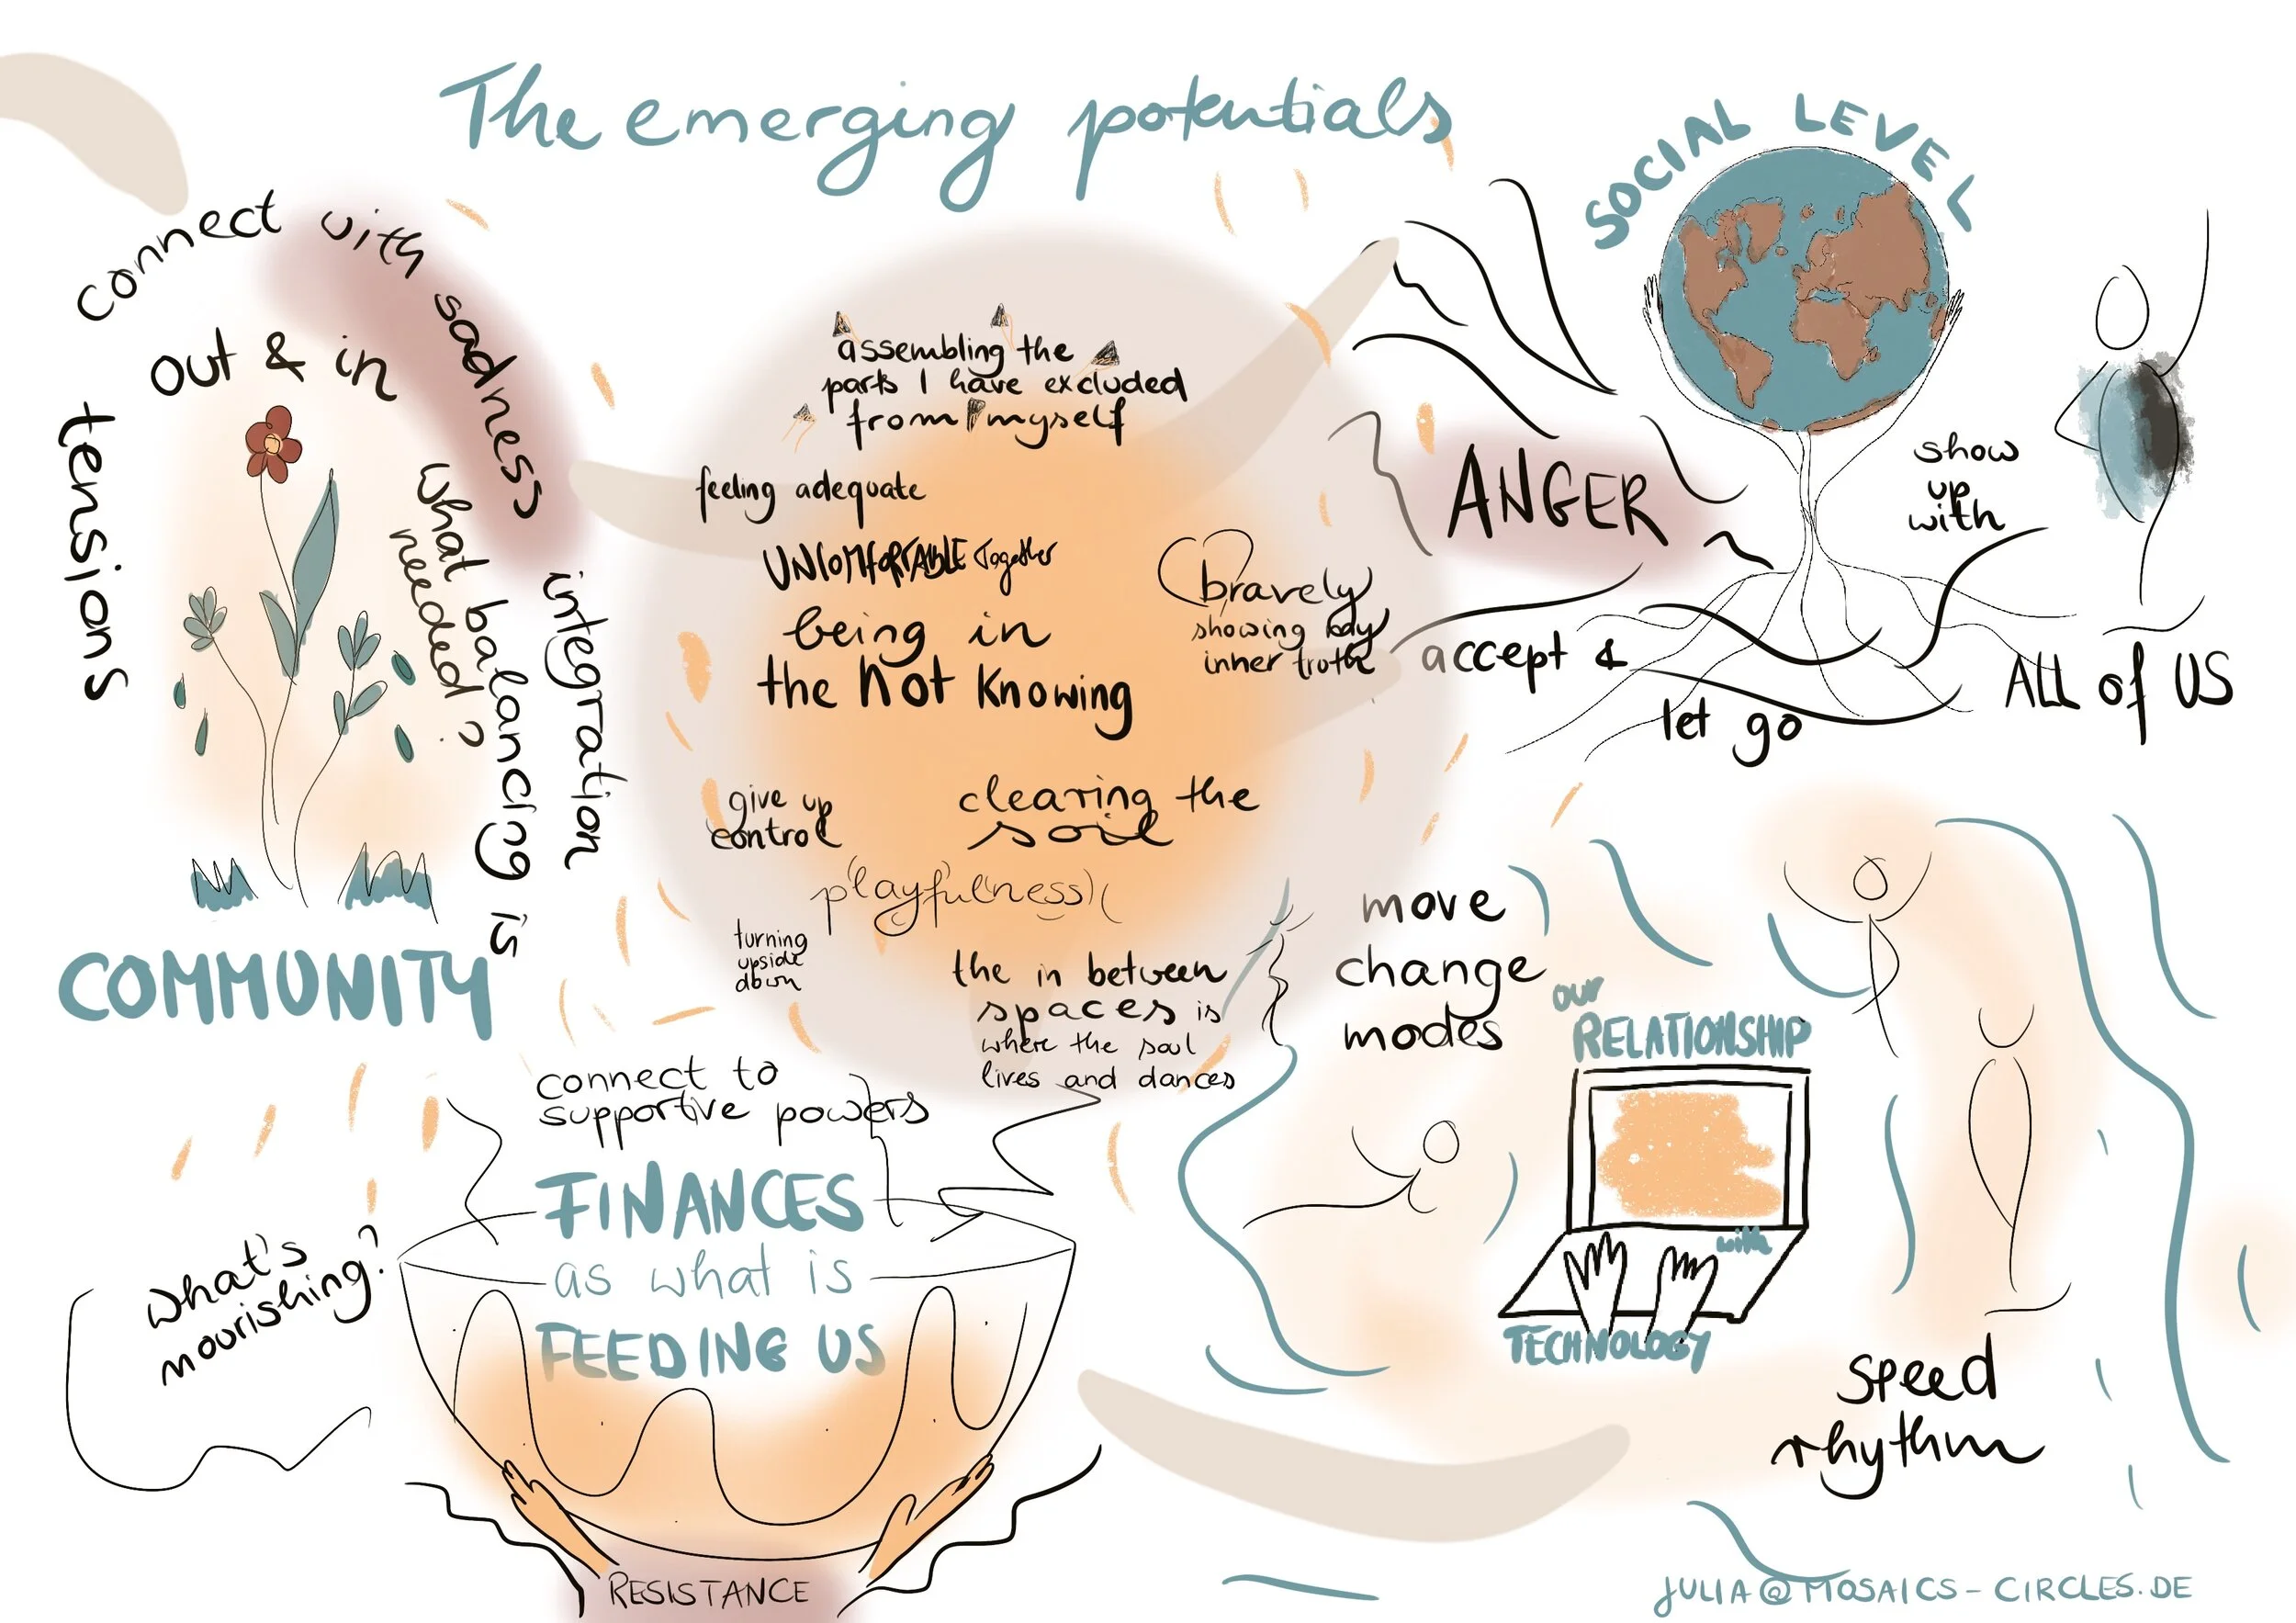 The emerging potentials
SOCIAL LEVEL
connect with sadness
out & in
tensions
what balancing is
needed?
integration
COMMUNITY
assembling the
parts I have excluded
from myself
feeling adequate
UNCOMFORTABLE together
being in
the not knowing
bravely
showing my
inner truth
give up
control
clearing the
soil
playfulness
turning
upside
down
the in between
spaces is
where the soul
lives and dances
ANGER
accept &
let go
show
up
with
ALL of US
move
change
modes
our
RELATIONSHIP
with
TECHNOLOGY
speed
rhythm
connect to
supportive powers
FINANCES
as what is
FEEDING US
what's
nourishing?
RESISTANCE
JULIA@MOSAICS-CIRCLES.DE